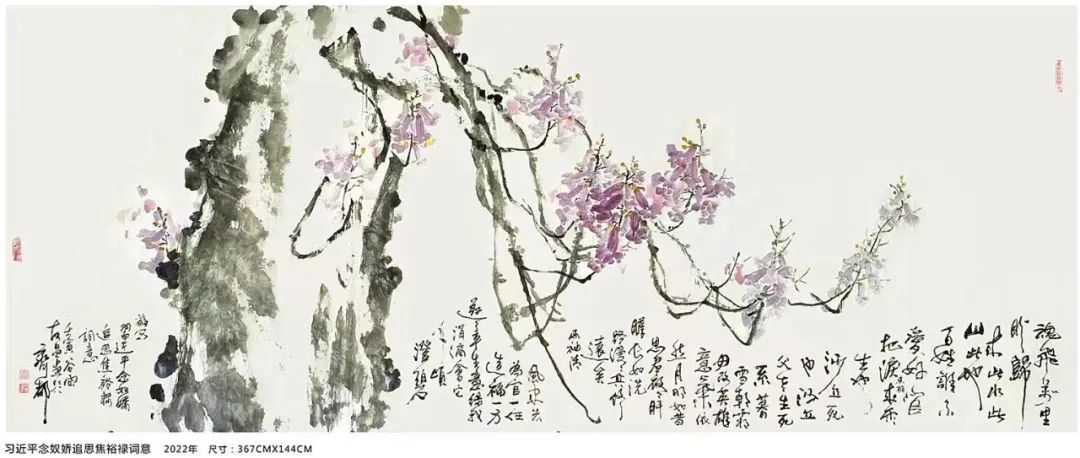 魂飛萬里
盼歸
来此水此
山此地
百姓誰不
愛好官
把淚焦桐
生也
沙丘死
也沙丘
父老生死
系暮
雪朝霜
毋改英雄
意氣依
然月明如昔
思君夜夜肝
膽长如洗
路漫漫其修
遠矣
两袖清
風来去
為官一任
造福一方
遂了平生意绿我
涓滴會它
千頃
澄碧
習近平念奴嬌
追思焦裕禄
詞意
壬寅谷雨
习近平念奴娇追思焦裕禄词意 2022年 尺寸：367CMX144CM